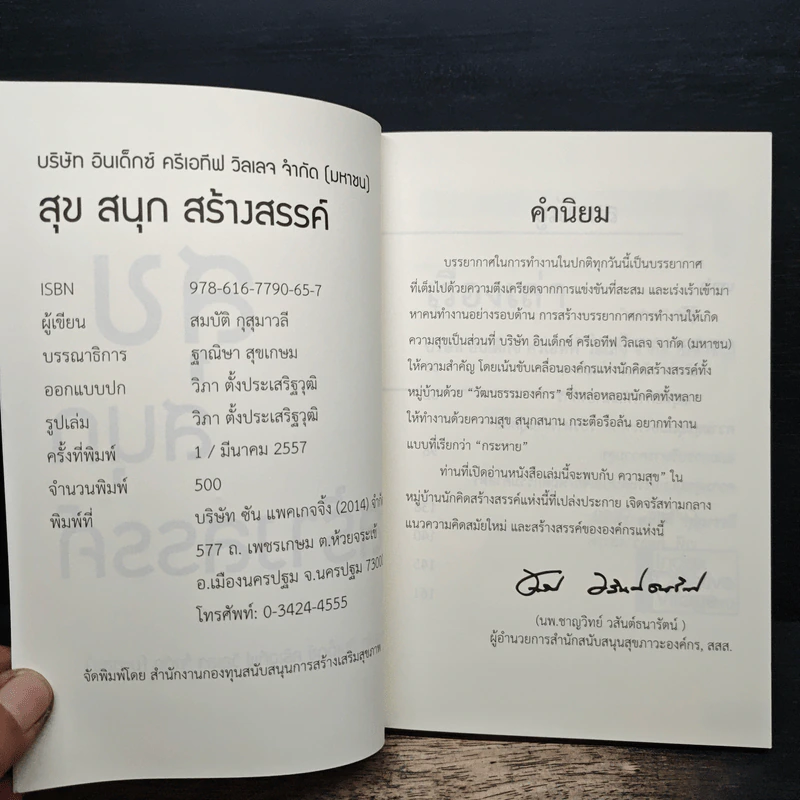 บริษัท อินเด็กซ์ ครีเอทีฟ วิลเลจ จำกัด (มหาชน)
สุข สนุก สร้างสรรค์
ISBN 978-616-7790-65-7
ผู้เขียน สมบัติ กุสุมาวลี
บรรณาธิการ ฐาณิษา สุขเกษม
ออกแบบปก วิภา ตั้งประเสริฐวุฒิ
รูปเล่ม วิภา ตั้งประเสริฐวุฒิ
ครั้งที่พิมพ์ 1 / มีนาคม 2557
จำนวนพิมพ์ 500
พิมพ์ที่ บริษัท ซัน แพคเกจจิ้ง (2014) จำกั
577 ถ. เพชรเกษม ต.ห้วยจระเข้
อ.เมืองนครปฐม จ.นครปฐม 73000
โทรศัพท์: 0-3424-4555
จัดพิมพ์โดย สำนักงานกองทุนสนับสนุนการสร้างเสริมสุขภาพ
คำนิยม
บรรยากาศในการทำงานในปกติทุกวันนี้เป็นบรรยากาศ
ที่เต็มไปด้วยความตึงเครียดจากการแข่งขันที่สะสม และเร่งเร้าเข้ามา
หาคนทำงานอย่างรอบด้าน การสร้างบรรยากาศการทำงานให้เกิด
ความสุขเป็นส่วนที่ บริษัท อินเด็กซ์ ครีเอทีฟ วิลเลจ จากัด (มหาชน)
ให้ความสำคัญ โดยเน้นขับเคลื่อนองค์กรแห่งนักคิดสร้างสรรค์ทั้ง
หมู่บ้านด้วย “วัฒนธรรมองค์กร” ซึ่งหล่อหลอมนักคิดทั้งหลาย
ให้ทำงานด้วยความสุข สนุกสนาน กระตือรือล้น อยากทำงาน
แบบที่เรียกว่า “กระหาย”
ท่านที่เปิดอ่านหนังสือเล่มนี้จะพบกับ ความสุข” ใน
หมู่บ้านนักคิดสร้างสรรค์แห่งนี้ที่เปล่งประกาย เจิดจรัสท่ามกลาง
แนวความคิดสมัยใหม่ และสร้างสรรค์ขององค์กรแห่งนี้
(นพ.ชาญวิทย์ วสันต์ธนารัตน์ )
ผู้อำนวยการสำนักสนับสนุนสุขภาวะองค์กร, สสส.